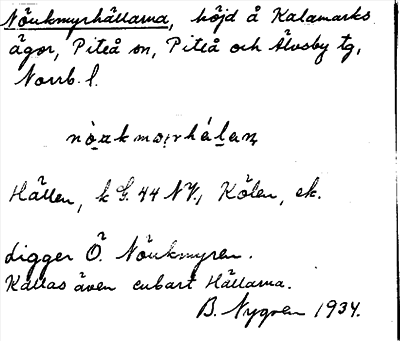 Nöukmyrhällarna, höjd å Kalamarks
ägor, Piteå sn, Piteå och Älvsby tg,
Norrb. l.
Hällen, k G. 44 NV., Kölen, ek.
Ligger Ö. Nöukmyren.
Kallas även enbart Hällarna.
B. Nygren 1934.